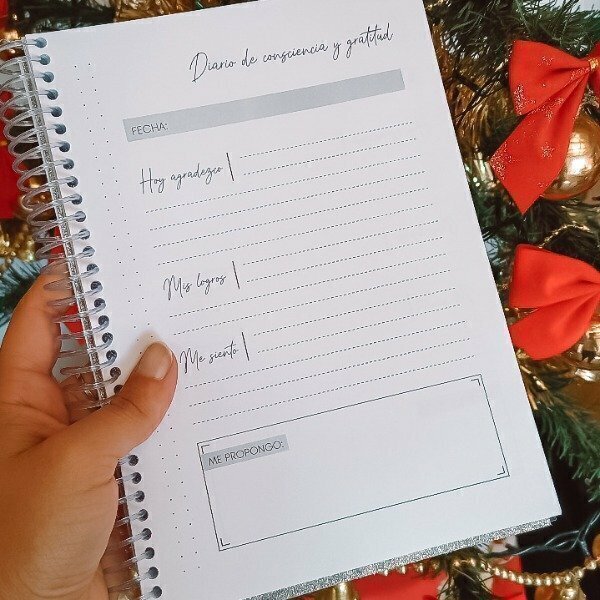 Diario de consciencia y gratitud
FECHA:
Hoy agradezco
Mis logros
Me siento
ME PROPONGO: